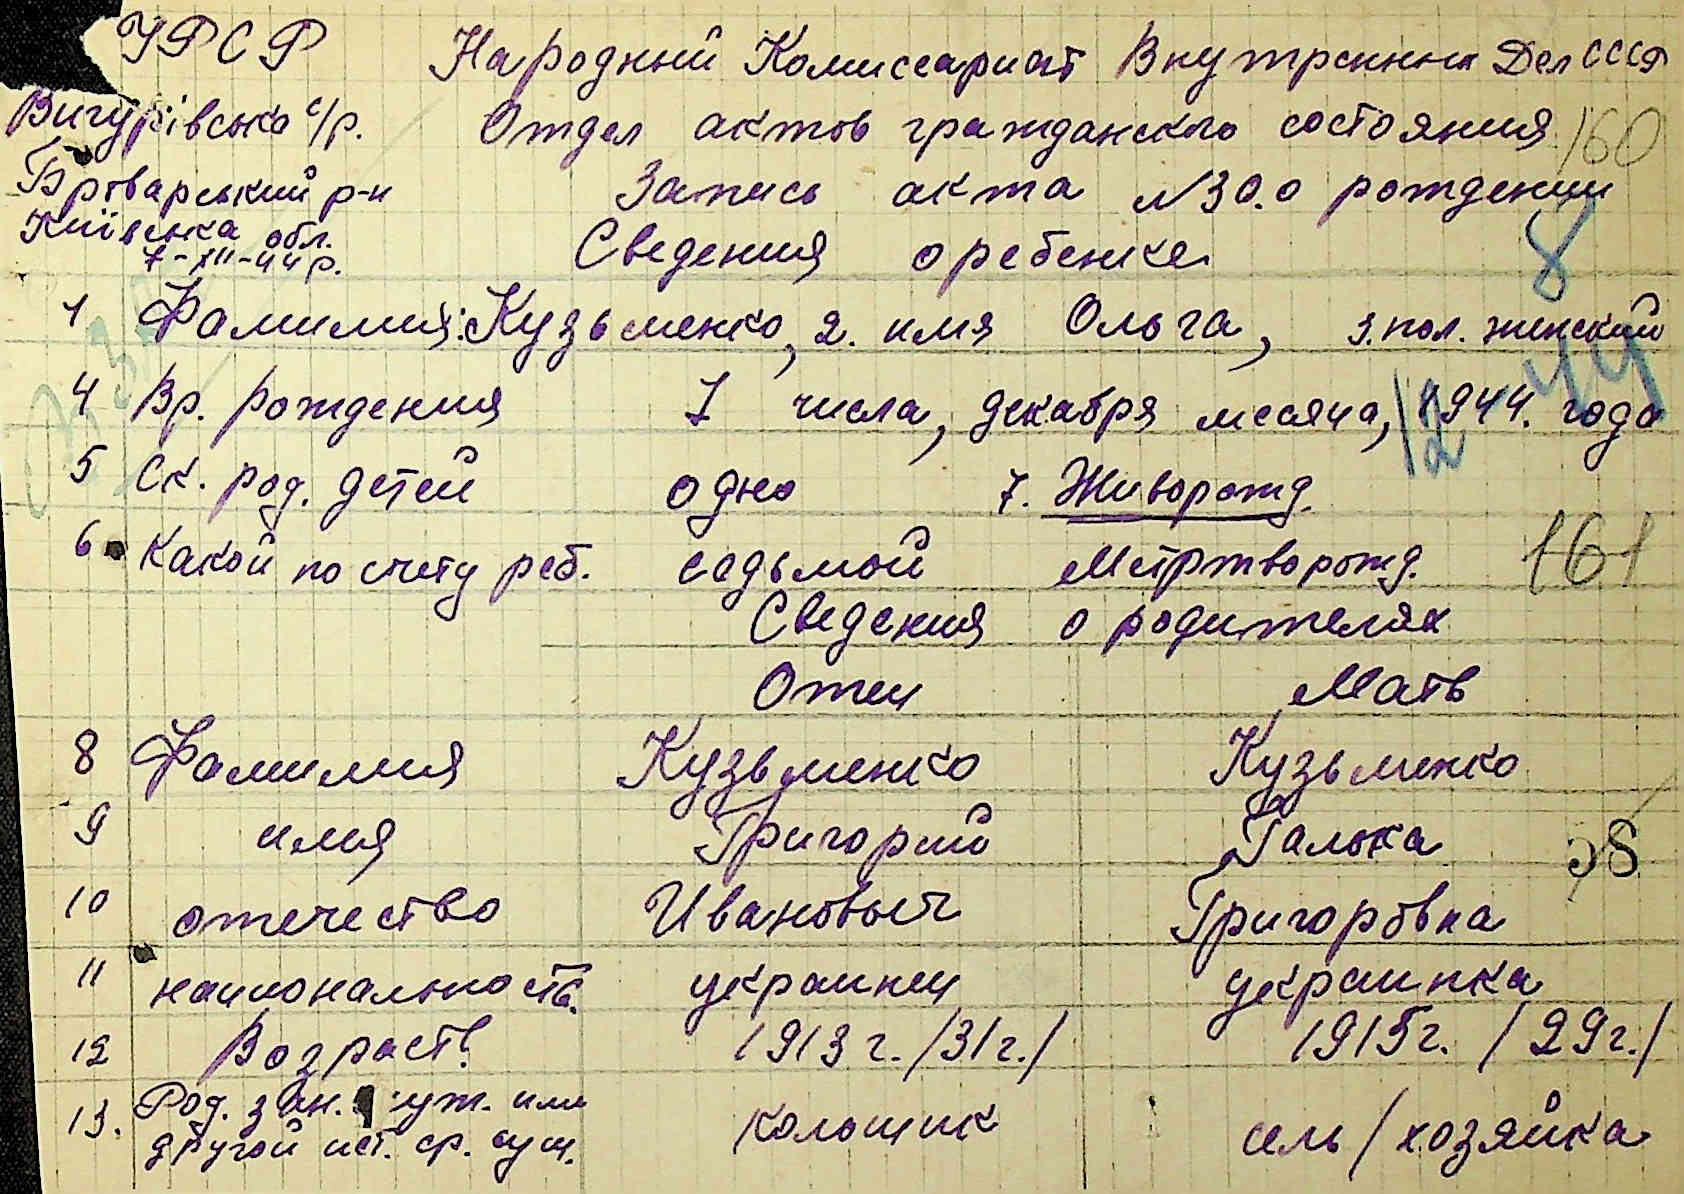 УРСР Народный Комиссариат Внутренних Дел СССР
Вигурівська с/р. Отдел актов гражданского состояния 160
Броварський р-н Запись акта №30. о рождении
Київська обл.
7-XII-44 р. Сведения о ребенке 8
1 Фамилия: Кузьменко, 2. имя Ольга, 3. пол. женский
4 Вр. рождения 7 числа, декабря месяца, 1944. года
12 44
5 Ск. род. детей одно 7. Живорожд.
6. Какой по счету реб. седьмой Мертворожд. 161
Сведения о родителях
Отец Мать
8 Фамилия Кузьменко Кузьменко
9 имя Григорий Галька
10 отечество Ивановыч Григоровна
11 национальность. украинец украинка
12 Возраст. 1913 г. /31 г./ 1915 г. /29 г./
13. Род. зан. или колощик сель/хозяйка
другой ист. ср. сущ.